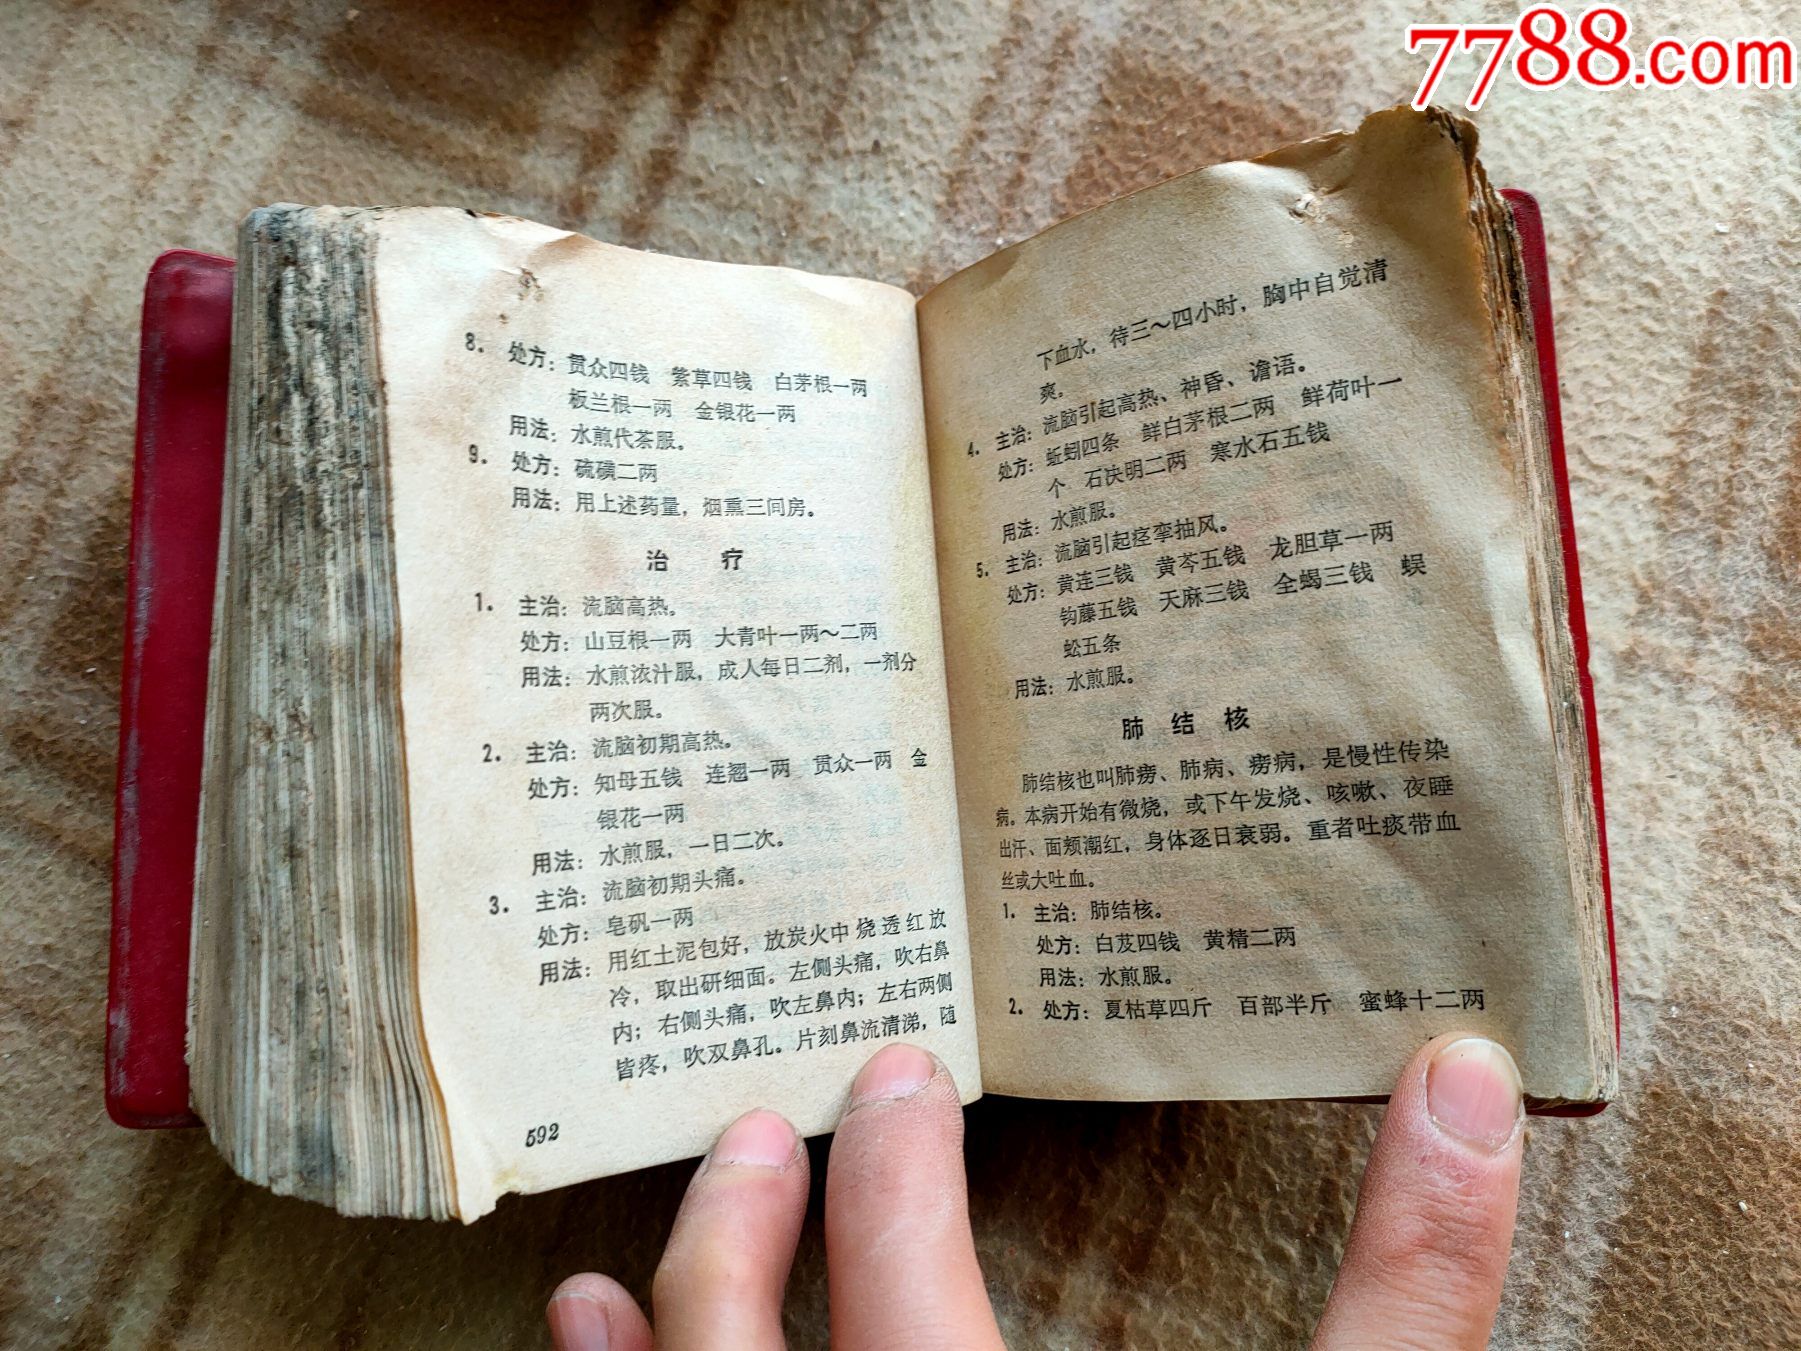 7788.com
8. 处方：贯众四钱 紫草四钱 白茅根一两
板兰根一两 金银花一两
用法：水煎代茶服。
9. 处方：硫磺二两
用法：用上述药量，烟熏三间房。
治 疗
1. 主治：流脑高热。
处方：山豆根一两 大青叶一两～二两
用法：水煎浓汁服，成人每日二剂，一剂分
两次服。
2. 主治：流脑初期高热。
处方：知母五钱 连翘一两 贯众一两 金
银花一两
用法：水煎服，一日二次。
3. 主治：流脑初期头痛。
处方：皂矾一两
用法：用红土泥包好，放炭火中烧透红放
冷，取出研细面。左侧头痛，吹右鼻
内；右侧头痛，吹左鼻内；左右两侧
皆疼，吹双鼻孔。片刻鼻流清涕，随
592
下血水，待三～四小时，胸中自觉清
爽。
4. 主治：流脑引起高热、神昏、谵语。
处方：蚯蚓四条 鲜白茅根二两 鲜荷叶一
个 石决明二两 寒水石五钱
用法：水煎服。
5. 主治：流脑引起痉挛抽风。
处方：黄连三钱 黄芩五钱 龙胆草一两
钩藤五钱 天麻三钱 全蝎三钱 蜈
蚣五条
用法：水煎服。
肺 结 核
肺结核也叫肺痨、肺病、痨病，是慢性传染
病。本病开始有微烧，或下午发烧、咳嗽、夜睡
出汗、面颊潮红，身体逐日衰弱。重者吐痰带血
丝或大吐血。
1. 主治：肺结核。
处方：白芨四钱 黄精二两
用法：水煎服。
2. 处方：夏枯草四斤 百部半斤 蜜蜂十二两